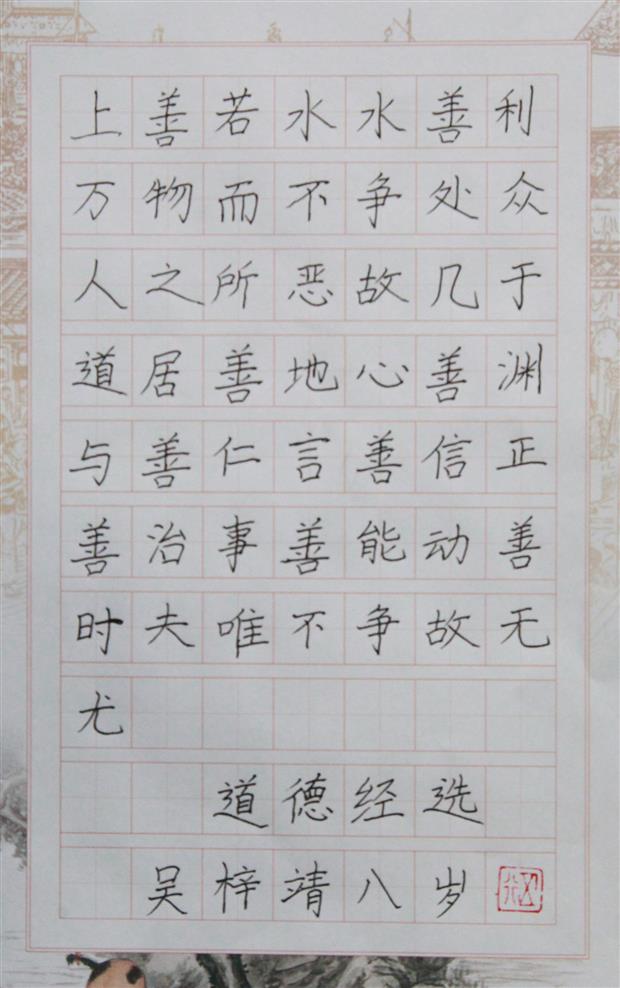 上善若水水善利
万物而不争处众
人之所恶故几于
道居善地心善渊
与善仁言善信正
善治事善能动善
时夫唯不争故无
尤
道德经选
吴梓靖八岁